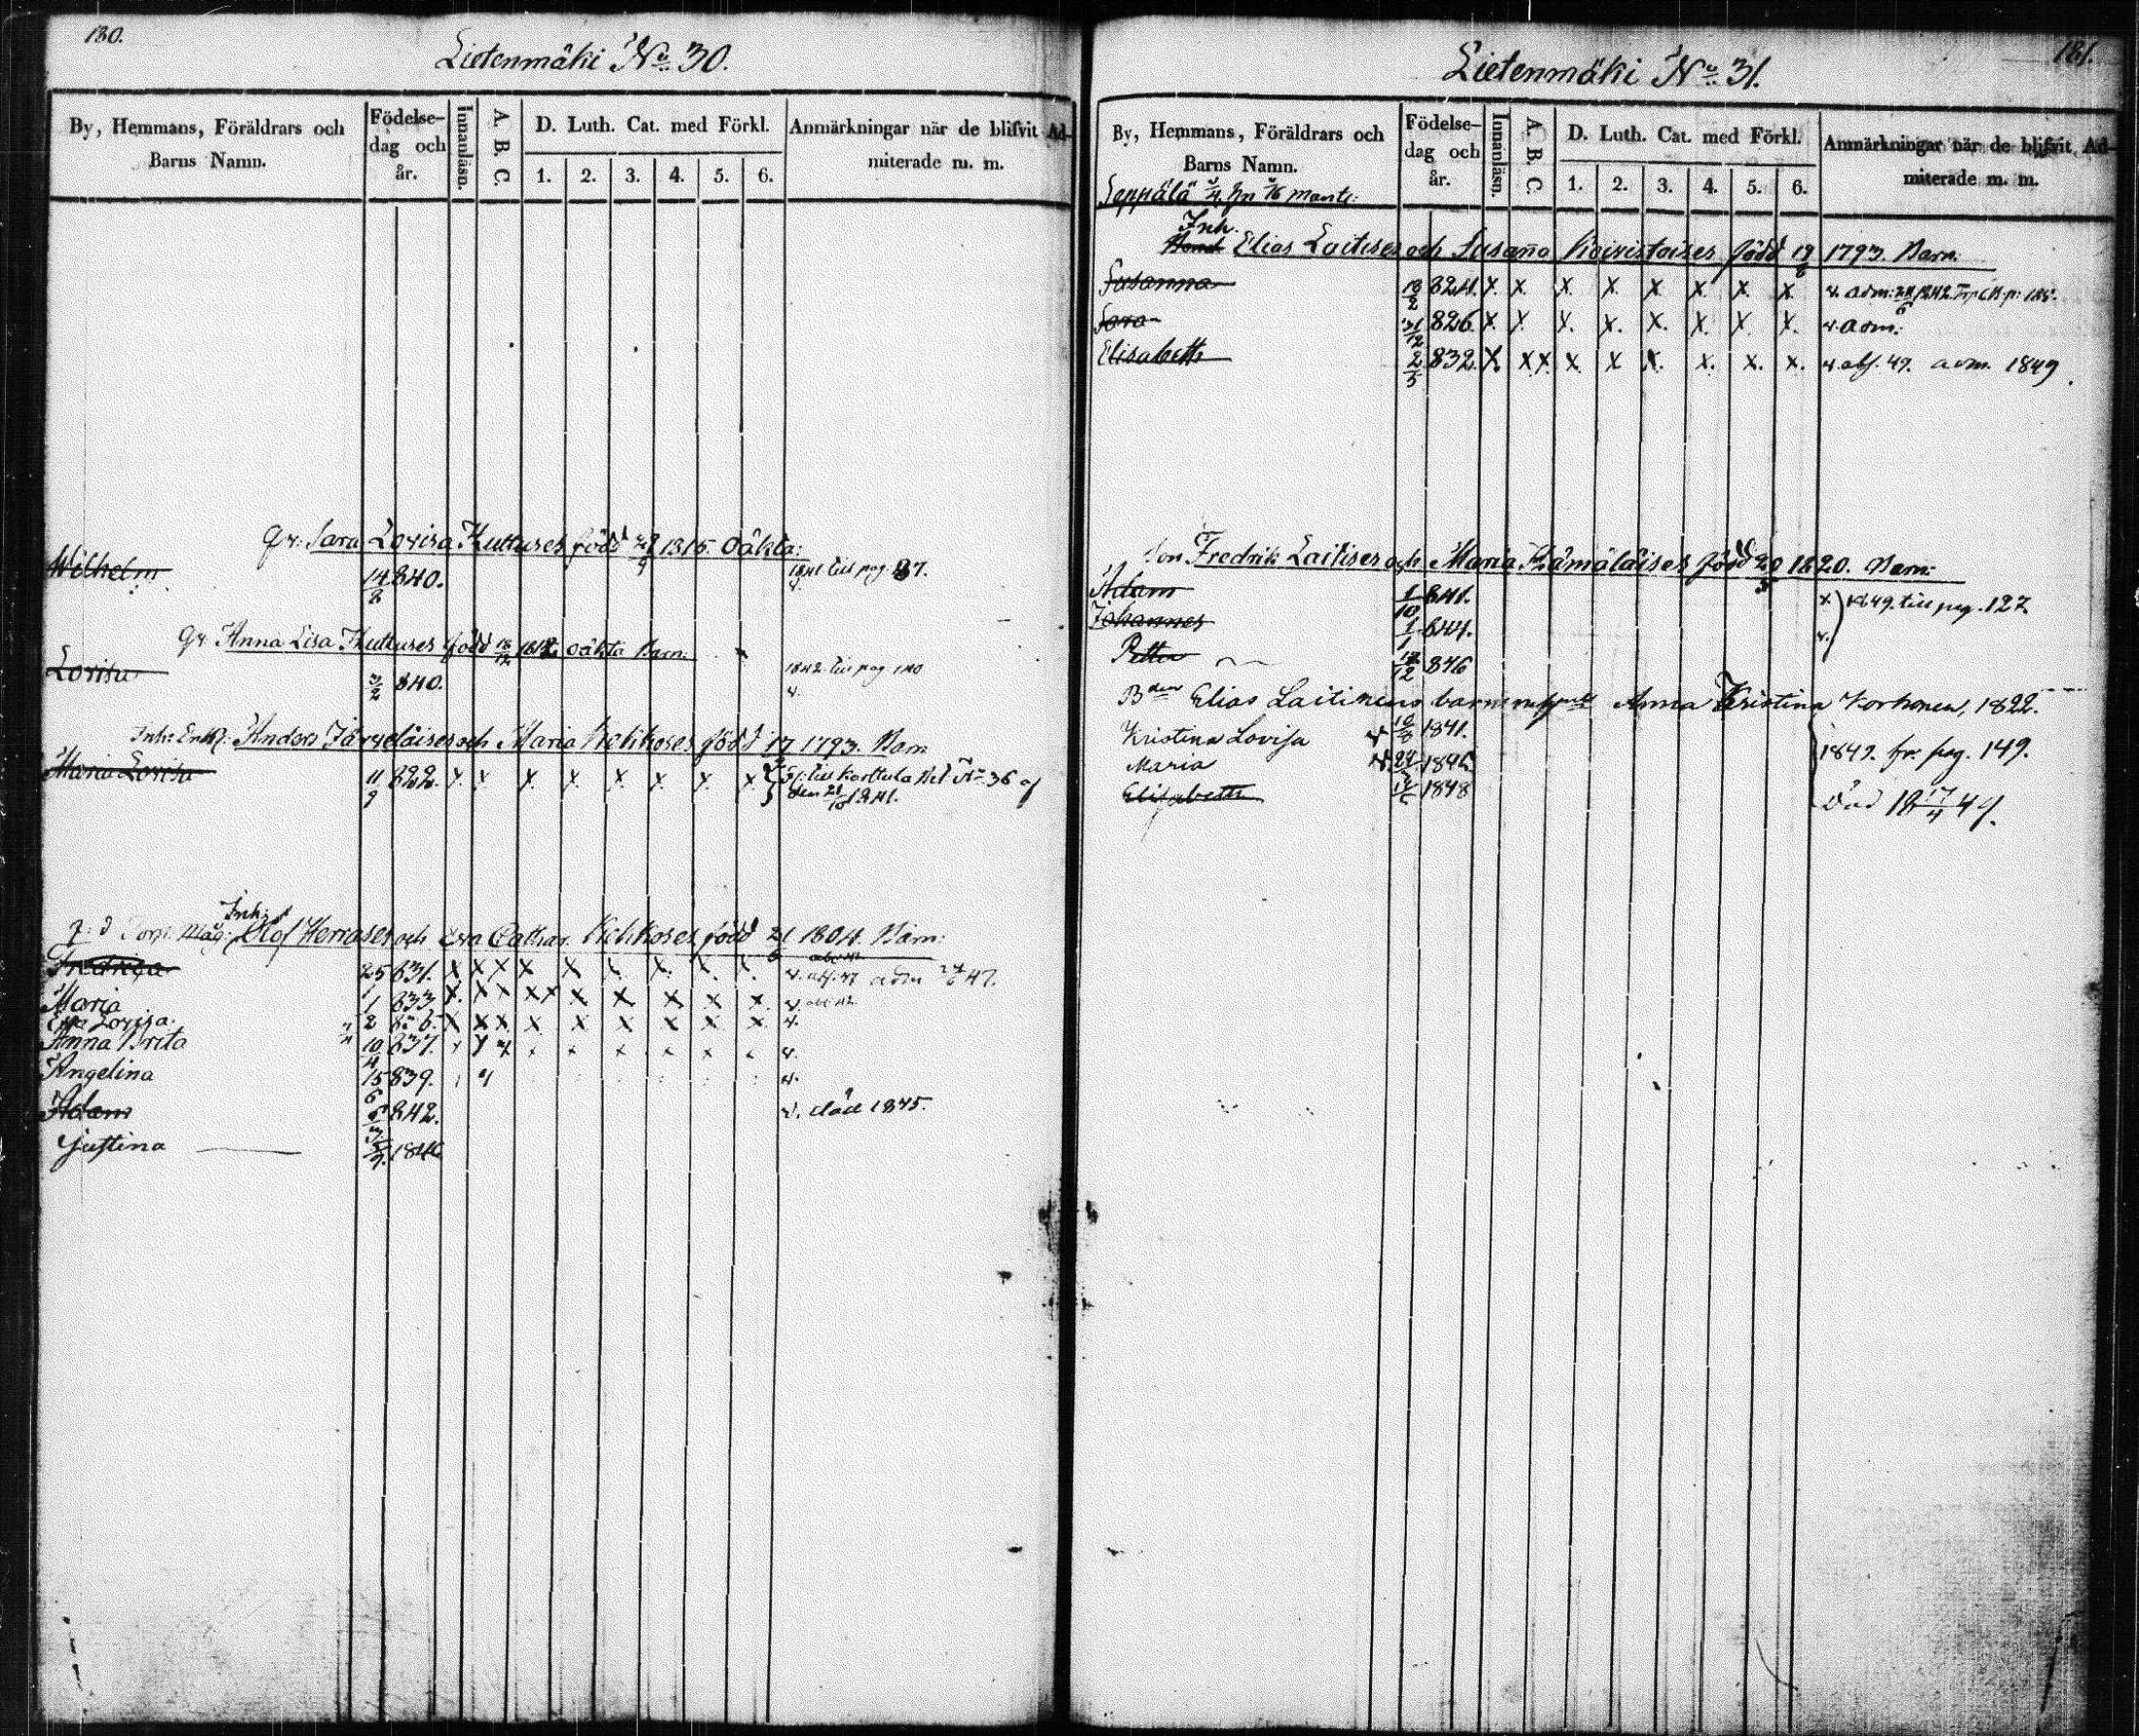 130.
Lietenmäki No 30.
By, Hemmans, Föräldrars och Barns Namn.
Födelse-dag och år.
Innanläsn.
A. B. C.
D. Luth. Cat. med Förkl.
1. 2. 3. 4. 5. 6.
Anmärkningar när de blifvit Admiterade m. m.
Sara Lovisa Kuttuses född 1815. oäkta:
Wilhelm 14/8 840. 1841 till pag. 87.
Anna Lisa Kuttuses född oäkta Barn.
Lovisa 3/2 840. 1842 till pag 140
Inh: Enkl: Anders Järveläises och Maria Kehkoses född 17 1793. Barn
Maria Lovisa 11/9 822. x x x x x x x x till Karttula
den 21/10 1841.
Inh:
Måg: Olof Herrases och Eva Cathar. Kehkoses född 21 1804. Barn:
Fredrica 25/1 831. x x x x x x x x x abs. 47 adm 47.
Maria 1 833 x x x x x x x x x x
Eva Lovisa. 2 x x x x x x x x x
Anna Brita 10/4 837.
Angelina 15/6 839.
Adam 842. död 1845.
Justina 184
181.
Lietenmäki No 31.
By, Hemmans, Föräldrars och Barns Namn.
Födelse-dag och år.
Innanläsn.
A. B. C.
D. Luth. Cat. med Förkl.
1. 2. 3. 4. 5. 6.
Anmärkningar när de blifvit Admiterade m. m.
Seppälä
Inh.
Bond Elias Laitises och Susanna Koivistoises född 19 1793. Barn:
Susanna 18/2 824. x. x x. x. x x. x. x
Sara 31/12 826 x. x x. x. x. x. x. x. adm:
Elisabeth 2/5 832. x. x x. x. x x. x. x. x. abs. 49. adm. 1849
Son Fredrik Laitises och Maria Hämäläises född 20 1820. Barn:
Adam 1/10 841. 1849. till pag. 127
Johannes 1/1 844.
Petter 12 846
Bden Elias Laitinens Anna Kristina Korhonen, 1822.
Kristina Lovisa 1841.
Maria 24 1846 1849. fr. pag. 149.
Elisabeth 1848 död 18 17/4 49.